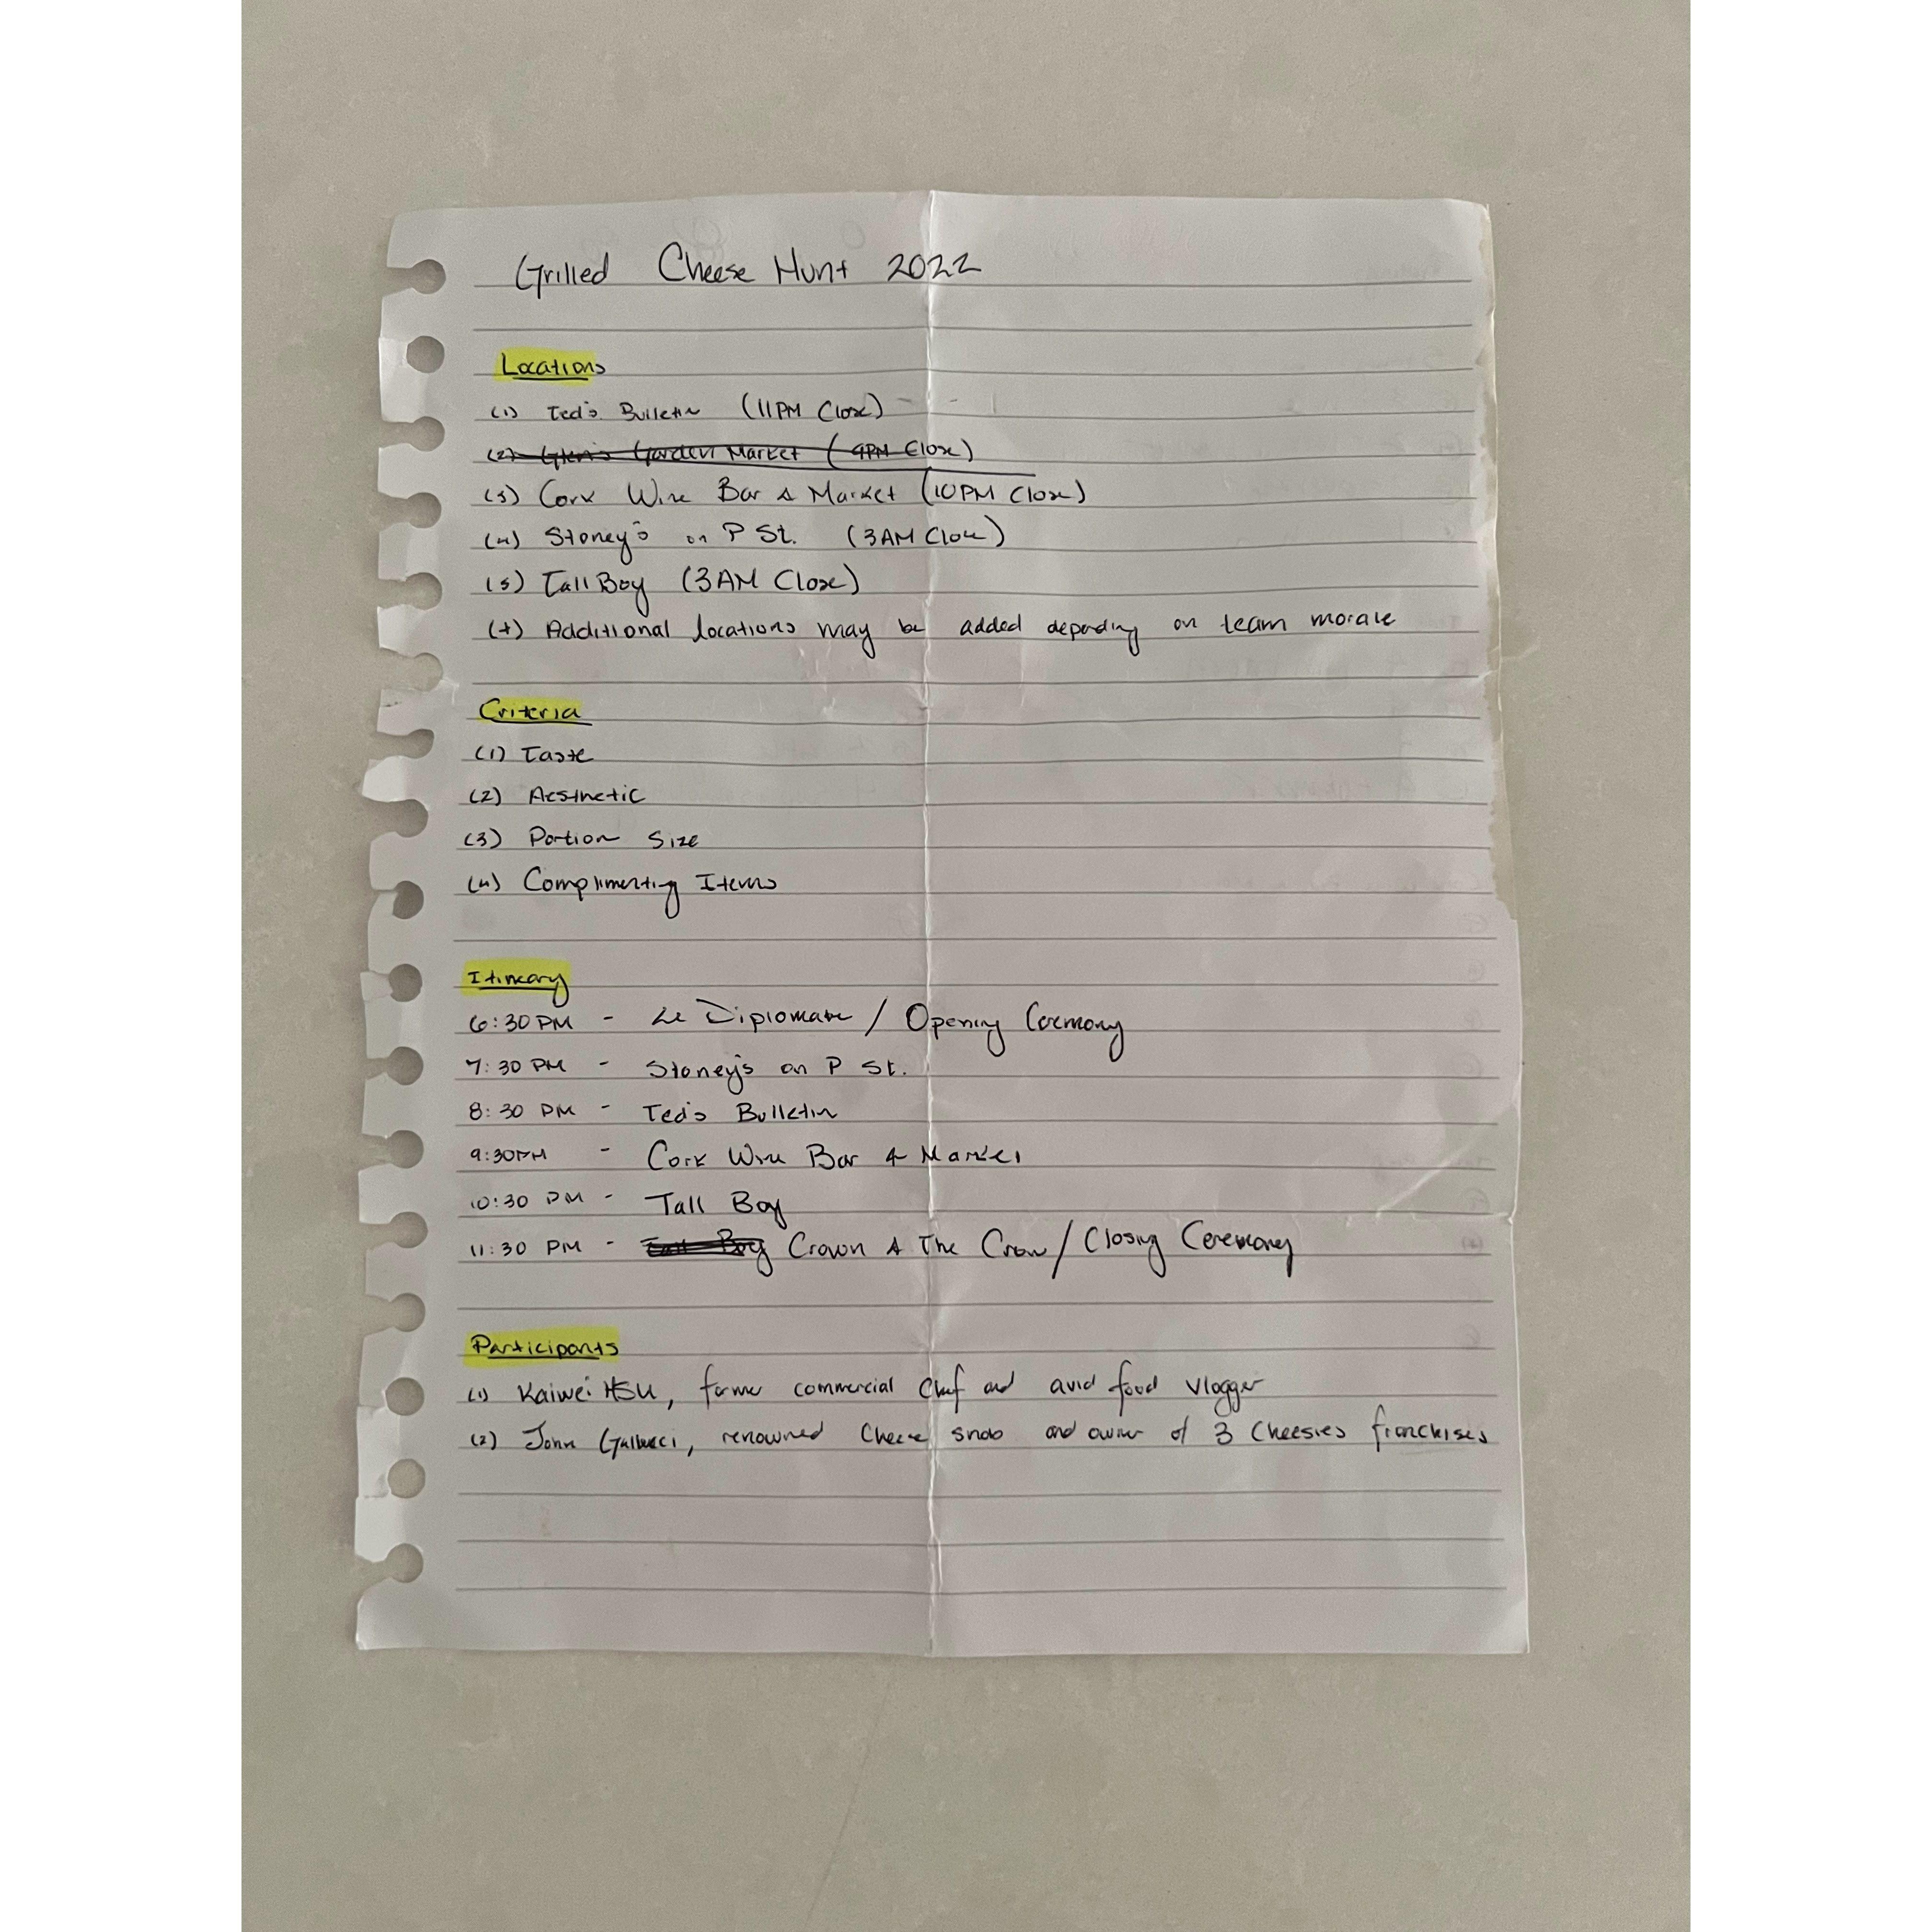 Grilled Cheese Hunt 2022
Locations
(1) Ted's Bulletin (11PM Close)
(2) Glen's Garden Market (9PM Close)
(3) Cork Wine Bar & Market (10PM Close)
(4) Stoney's on P St. (3AM Close)
(5) Tall Boy (3AM Close)
(+) Additional locations may be added depending on team morale
Criteria
(1) Taste
(2) Aesthetic
(3) Portion Size
(4) Complimenting Items
Itineary
6:30 PM - Le Diplomate / Opening Ceremony
7:30 PM - Stoney's on P St.
8:30 PM - Ted's Bulletin
9:30PM - Cork Wine Bar & Market
10:30 PM - Tall Boy
11:30 PM - Tall Boy Crown & The Crow / Closing Ceremony
Participants
(1) Kaiwei HSU, former commercial Chef and avid food vlogger
(2) John Gallucci, renowned Cheese snob and owner of 3 Cheesies franchises